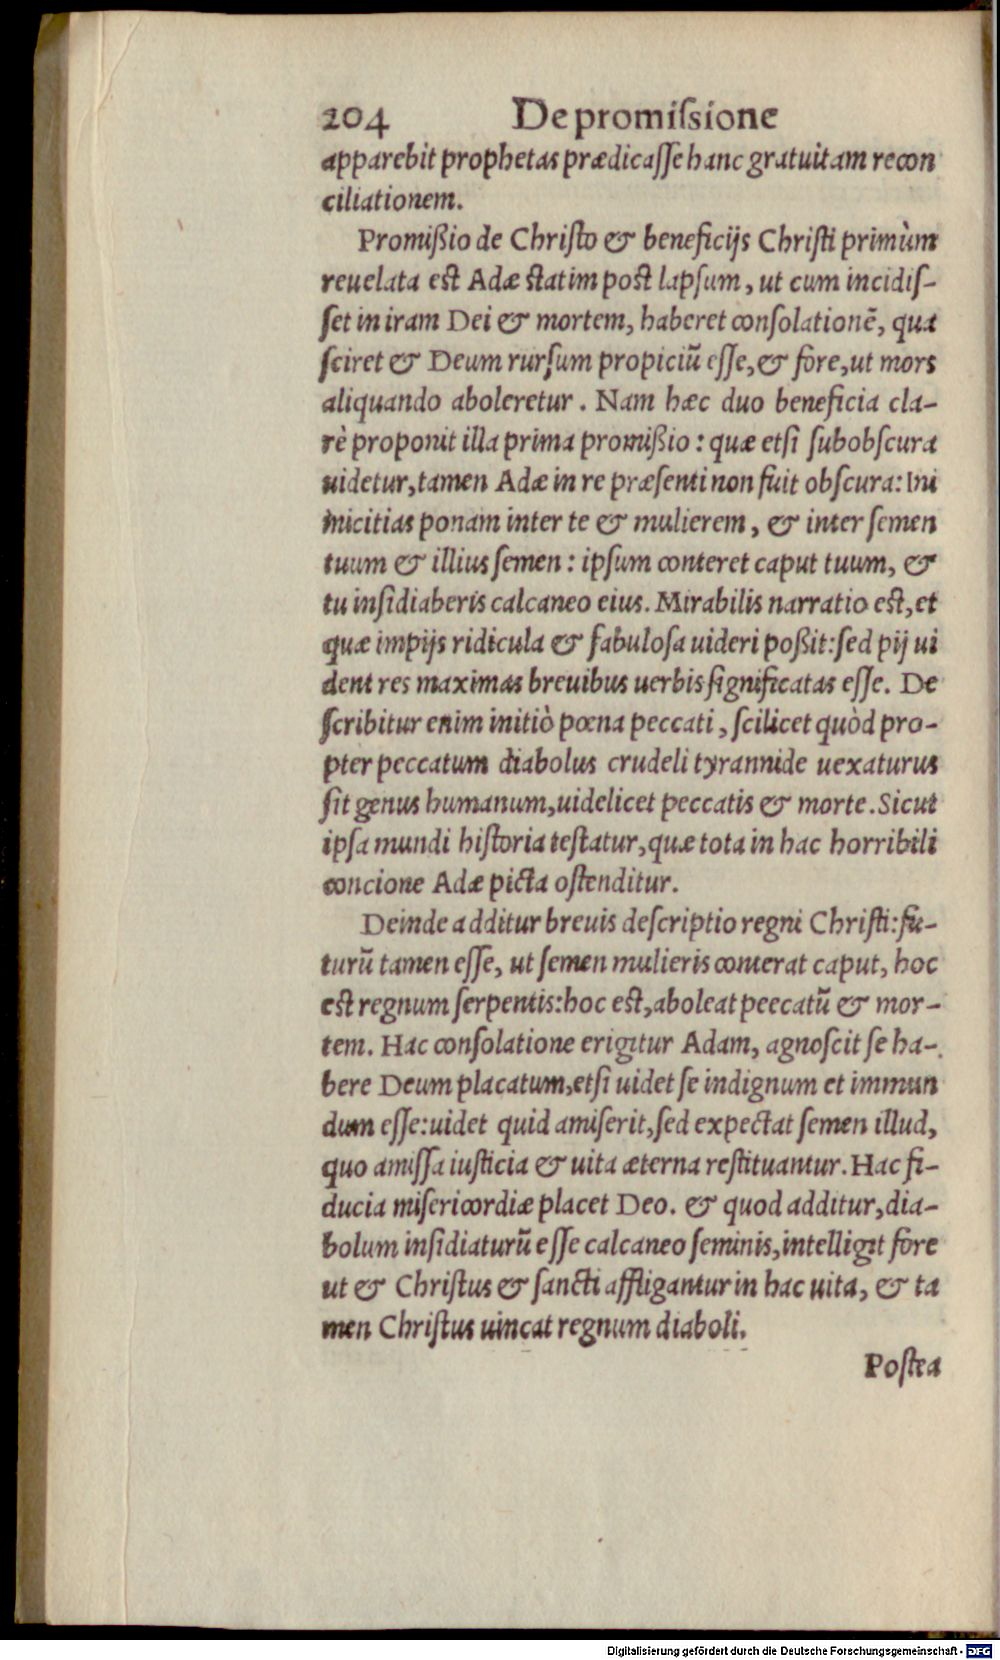 204 De promiſsione
apparebit prophetas prædicaſſe hanc gratuitam recon
ciliationem.
Promißio de Chriſto & beneficijs Chriſti primùm
reuelata est Adæ statim post lapſum, ut cum incidiſ-
ſet in iram Dei & mortem, haberet conſolationẽ, qua
ſciret & Deum rurſum propiciũ eſſe, & fore, ut mors
aliquando aboleretur. Nam hæc duo beneficia cla-
rè proponit illa prima promißio: quæ etſi ſubobſcura
uidetur, tamen Adæ in re præſenti non fuit obſcura: Ini
micitias ponam inter te & mulierem, & inter ſemen
tuum & illius ſemen: ipſum conteret caput tuum, &
tu inſidiaberis calcaneo eius. Mirabilis narratio est, et
quæ impijs ridicula & fabuloſa uideri poßit: ſed pij ui
dent res maximas breuibus uerbis ſignificatas eſſe. De
ſcribitur enim initiò pœna peccati, ſcilicet quòd pro-
pter peccatum diabolus crudeli tyrannide uexaturus
ſit genus humanum, uidelicet peccatis & morte. Sicut
ipſa mundi hiſtoria teſtatur, quæ tota in hac horribili
concione Adæ picta oſtenditur.
Deinde additur breuis deſcriptio regni Chriſti: fu-
turũ tamen eſſe, ut ſemen mulieris conterat caput, hoc
est regnum ſerpentis: hoc est, aboleat peccatũ & mor-
tem. Hac conſolatione erigitur Adam, agnoſcit ſe ha-
bere Deum placatum, etſi uidet ſe indignum et immun
dum eſſe: uidet quid amiſerit, ſed expectat ſemen illud,
quo amiſſa iuſticia & uita æterna reſtituantur. Hac fi-
ducia miſericordiæ placet Deo. & quod additur, dia-
bolum inſidiaturũ eſſe calcaneo ſeminis, intelligit fore
ut & Chriſtus & ſancti affligantur in hac uita, & ta
men Chriſtus uincat regnum diaboli.
Poſtea
Digitalisierung gefördert durch die Deutsche Forschungsgemeinschaft - DFG